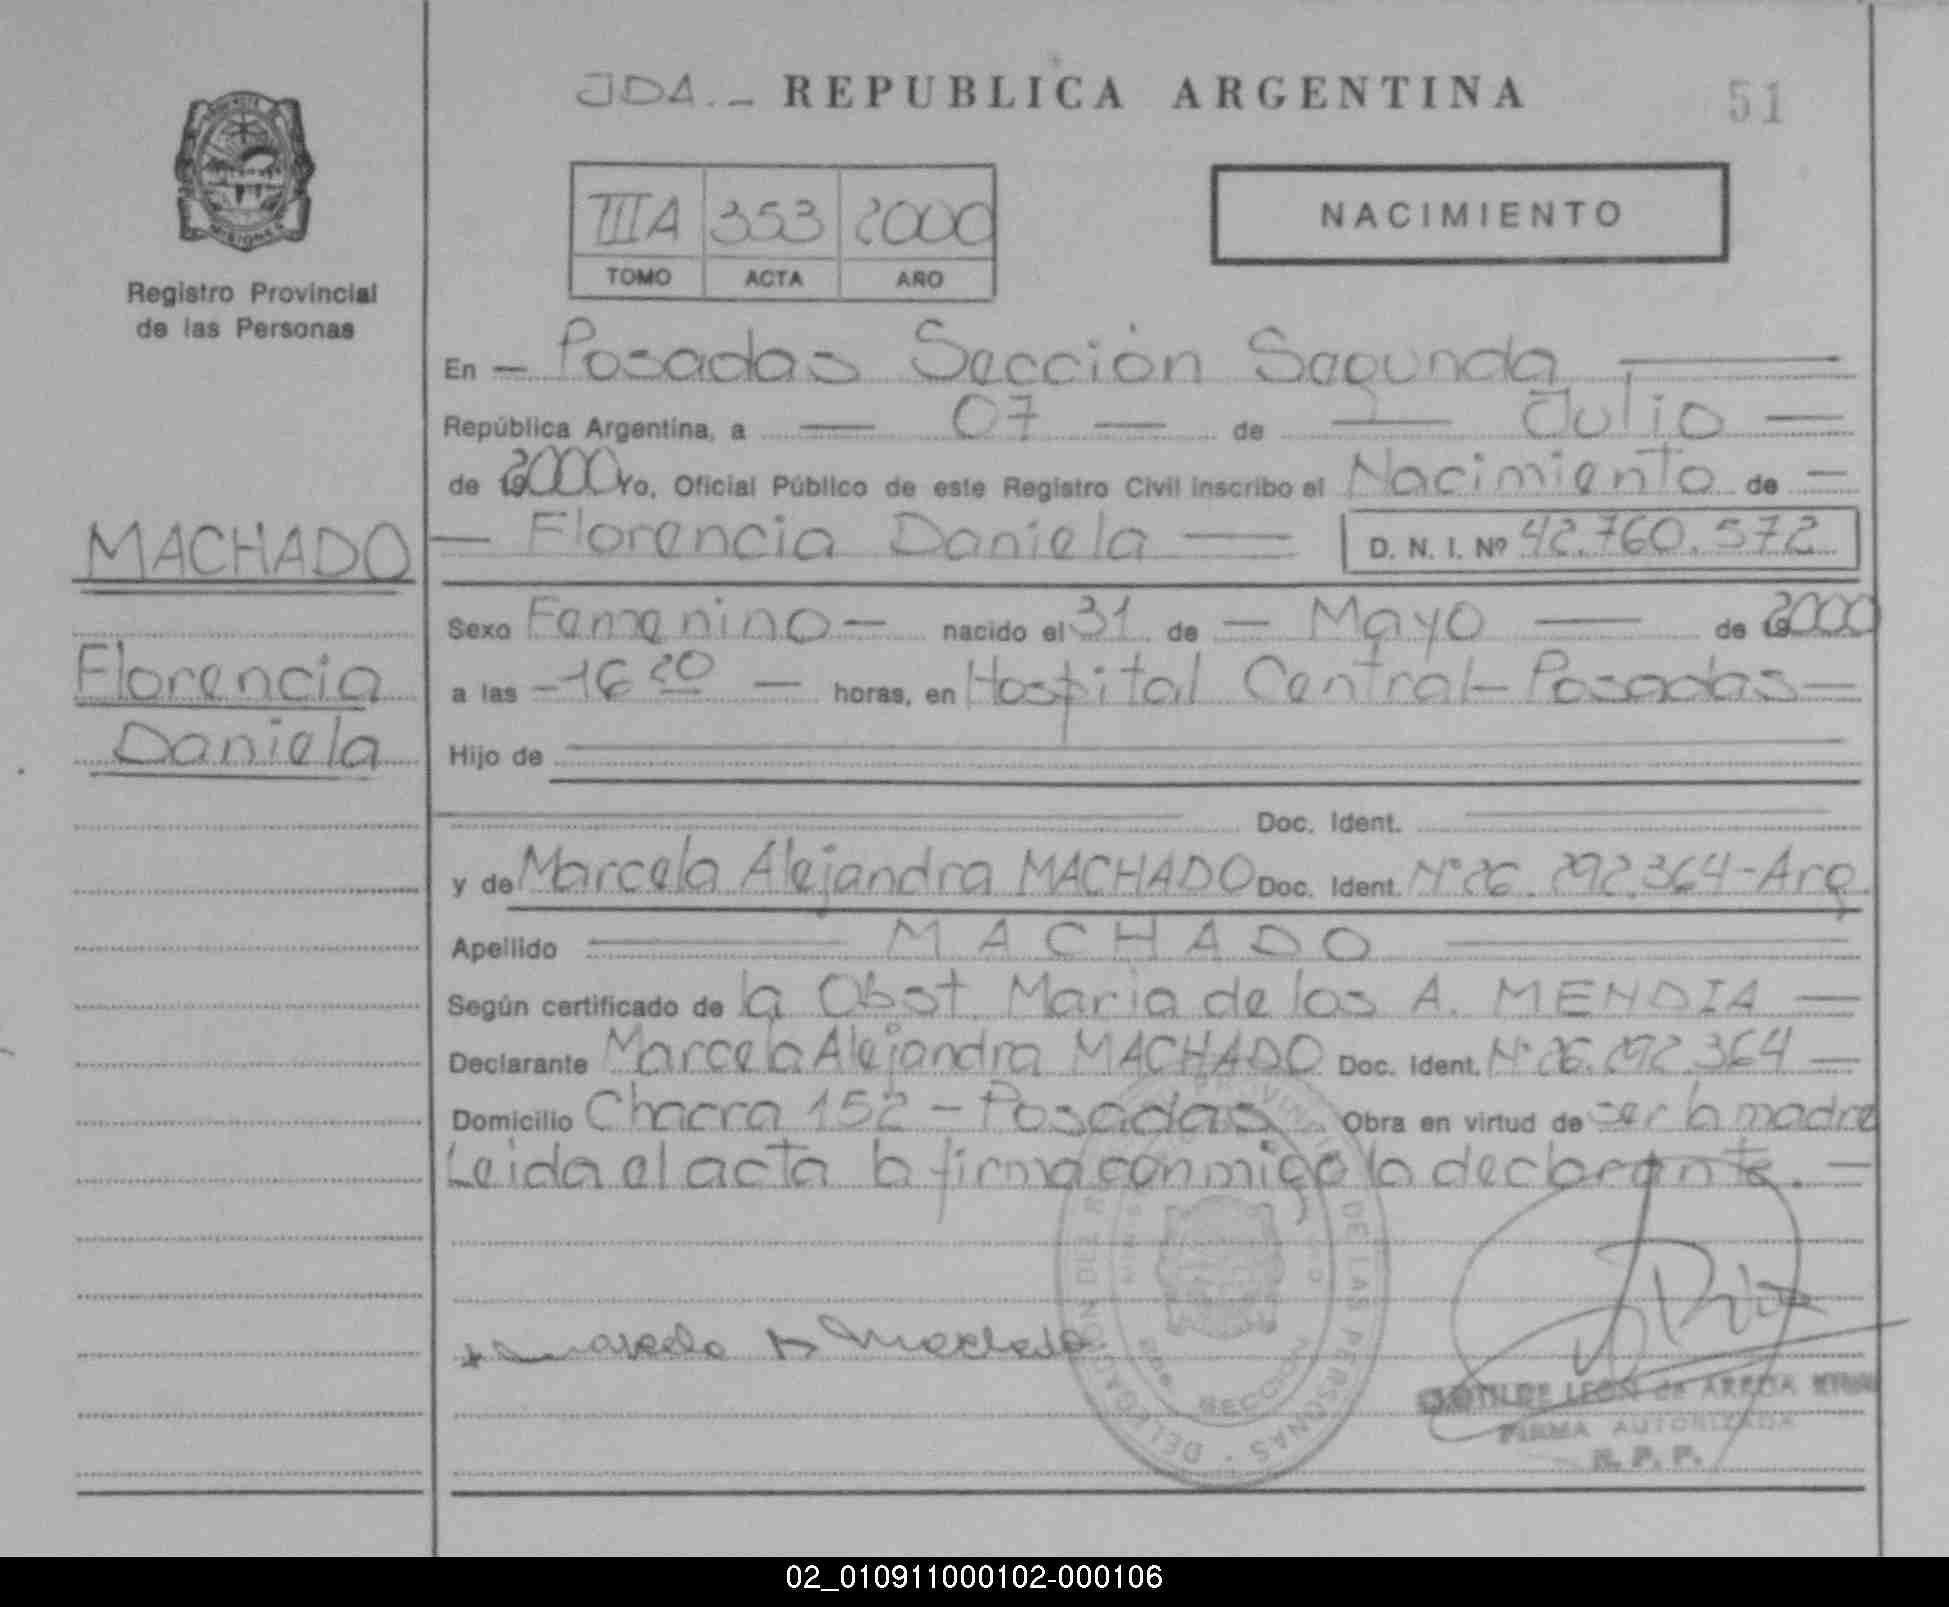 JDA.- REPUBLICA ARGENTINA 51
MISIONES
Registro Provincial
de las Personas
IIIA 353 2000
TOMO ACTA AÑO
NACIMIENTO
En — Posadas Sección Segunda —
República Argentina, a — 07 — de — Julio —
de 2000 Yo, Oficial Público de este Registro Civil inscribo el Nacimiento de —
MACHADO
Florencia
Daniela
— Florencia Daniela — D. N. I. Nº 42.760.572
Sexo Femenino — nacido el 31 de — Mayo — de 2000
a las — 16 20 — horas, en Hospital Central - Posadas —
Hijo de
Doc. Ident.
y de Marcela Alejandra MACHADO Doc. Ident. Nº 26.292.364 - Arg.
Apellido — MACHADO —
Según certificado de la Obst. Maria de los A. MENDIA —
Declarante Marcela Alejandra MACHADO Doc. Ident. Nº 26.292.364 —
Domicilio Chacra 152 - Posadas Obra en virtud de ser la madre
Leida el acta la firma conmigo la declarante. —
DELEGACION DEL REGISTRO PROVINCIAL DE LAS PERSONAS
SECCION
CLOTILDE LEON de ARECA
FIRMA AUTORIZADA
R. P. P.
02_010911000102-000106